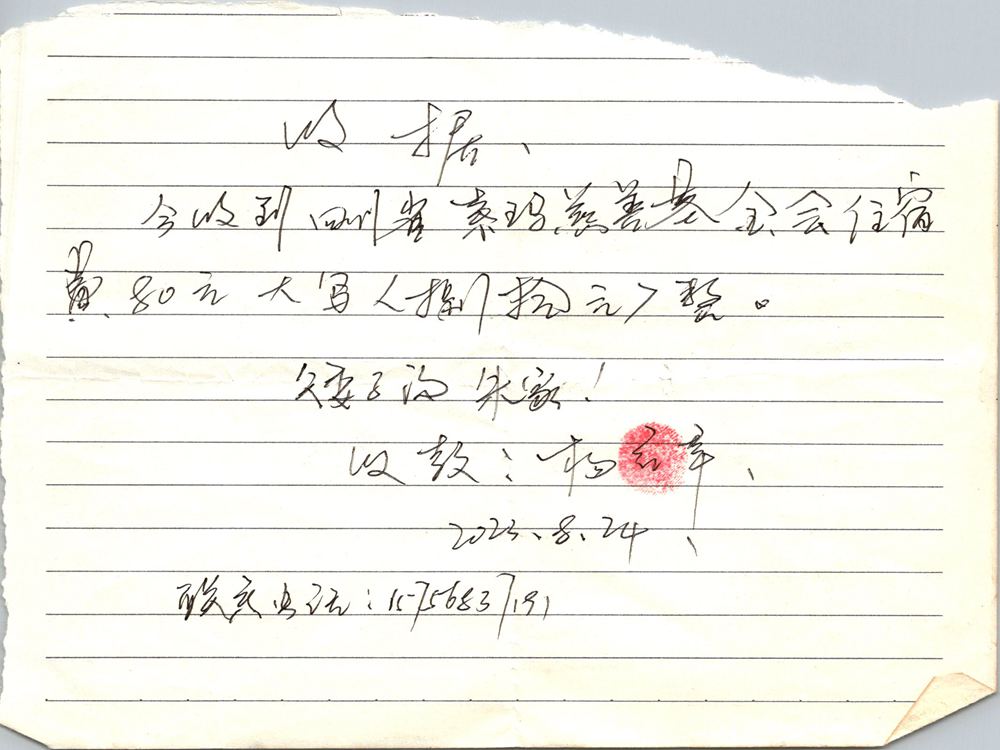 收据、
今收到四川省索玛慈善基金会住宿
费80元大写人捌拾元整。
矮子沟朱家!
收款:杨 章、
2023.8.24、
联系电话:15756837191